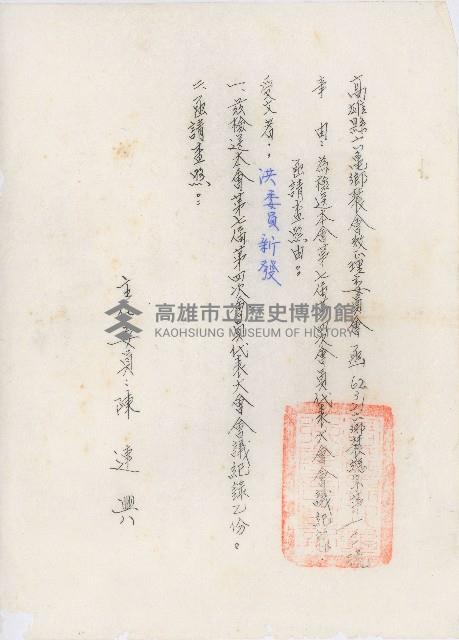 高雄縣六龜鄉農會整理委員會 函 62.3. 六鄉農總字第
事 由：為檢送本會第七屆第四次會員代表大會會議紀錄
函請查照由。
受文者：洪委員新發
一、茲檢送本會第七屆第四次會員代表大會會議紀錄乙份。
二、函請查照。
主任委員：陳 連 興
高雄市立歷史博物館
KAOHSIUNG MUSEUM OF HISTORY